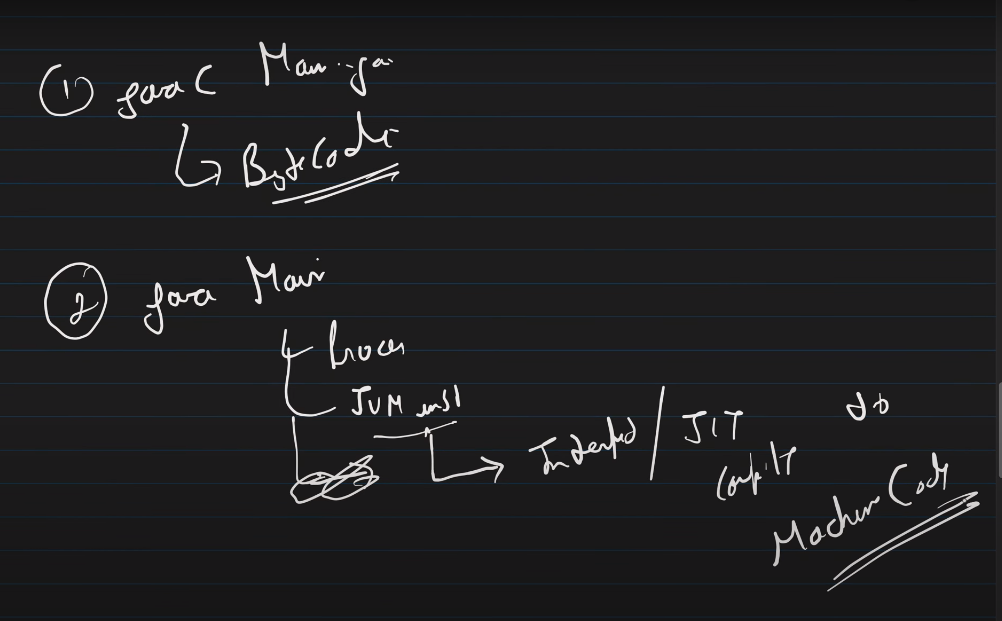 ① javaC Main.java
ByteCode
② java Main
Process
JVM inst
Interpred / JIT
Compilr
to
Machine Code